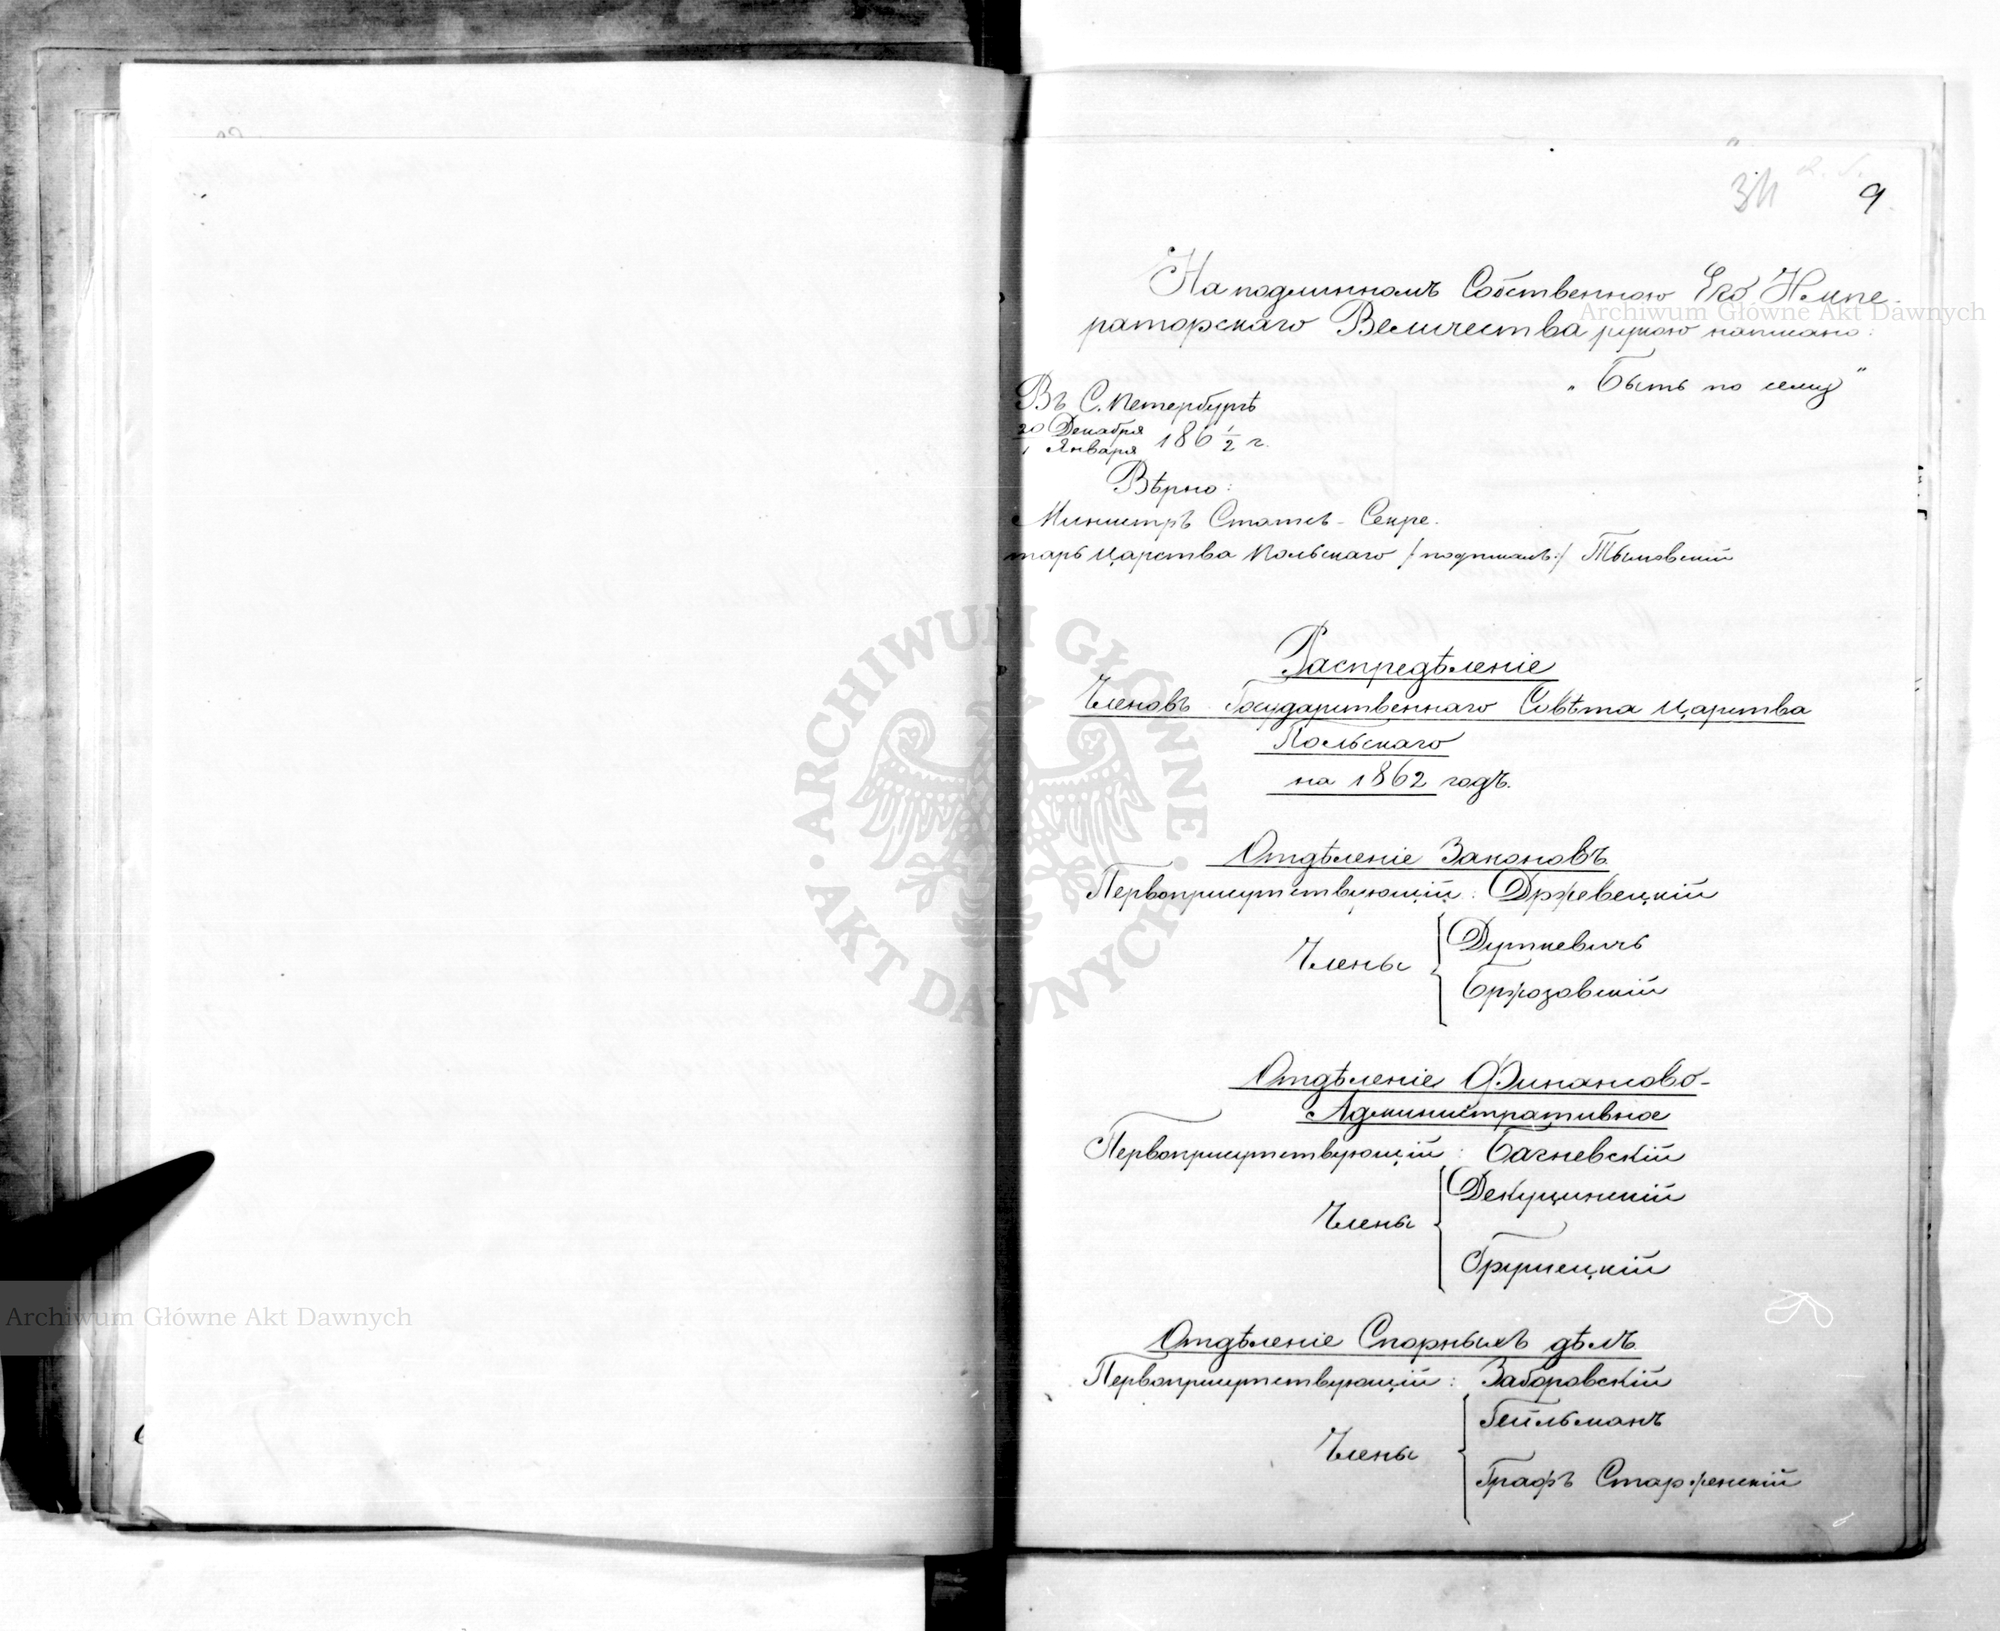 34 9
На подлинномъ Собственною Его Импе-
раторскаго Величества рукою написано:
„Быть по сему"
Въ С. Петербургѣ
20 Декабря
1 Января 186 1/2 г.
Вѣрно:
Министръ Статсъ-Секре-
тарь Царства Польскаго /подписалъ:/ Тымовскій
Распредѣленіе
Членовъ Государственнаго Совѣта Царства
Польскаго
на 1862 годъ.
Отдѣленіе Законовъ
Первоприсутствующій: Држевецкій
Члены
Дуткевичъ
Бржозовскій
Отдѣленіе Финансово-
Административное
Первоприсутствующій: Багневскій
Члены
Декуцинскій
Грушецкій
Отдѣленіе Спорныхъ дѣлъ
Первоприсутствующій: Заборовскій
Члены
Гейльманъ
Графъ Старженскій
Archiwum Główne Akt Dawnych
Archiwum Główne Akt Dawnych
ARCHIWUM GŁÓWNE AKT DAWNYCH